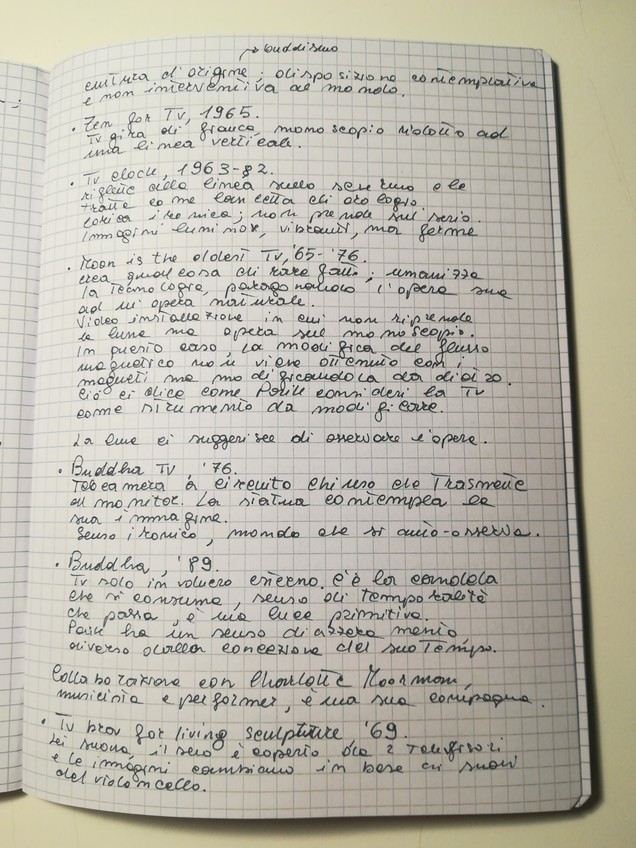 → buddismo
cultura d'origine; disposizione contemplativa
e non interventiva al mondo.
• Zen for Tv, 1965.
Tv gira di fianco, monoscopio ridotto ad
una linea verticale.
• Tv clock, 1963-82.
riflette della linea sullo schermo e le
tratta come lancetta di orologio.
Logica ironica; non prende sul serio.
Immagini luminose, vibranti, ma ferme
• Moon is the oldest Tv, '65-'76.
crea qualcosa di rare fatto; umanizza
la tecnologia, paragonando l'opera sua
ad un'opera naturale.
Video installazione in cui non riprende
la luna ma opera sul monoscopio.
In questo caso, la modifica del flusso
magnetico non viene ottenuto con i
magneti ma modificandola da diodo.
Ciò ci dice come Paik consideri la Tv
come strumento da modificare.
La luce ci suggerisce di osservare l'opera.
• Buddha Tv, '76.
Telecamera a circuito chiuso che trasmette
al monitor. La statua contempla la
sua immagine.
Senso ironico, mondo che si auto-osserva.
• Buddha, '89.
Tv solo in volucro esterno. c'è la candela
che si consuma, senso di temporalità
che passa, è una luce primitiva.
Paik ha un senso di azzeramento,
diverso dalla concezione del suo tempo.
Collaborazione con Charlotte Moorman,
musicista e performer, è una sua compagna.
• Tv brav for living sculpture '69.
Lei suona, il seno è coperto da 2 televisori
e le immagini cambiano in base ai suoni
del violoncello.